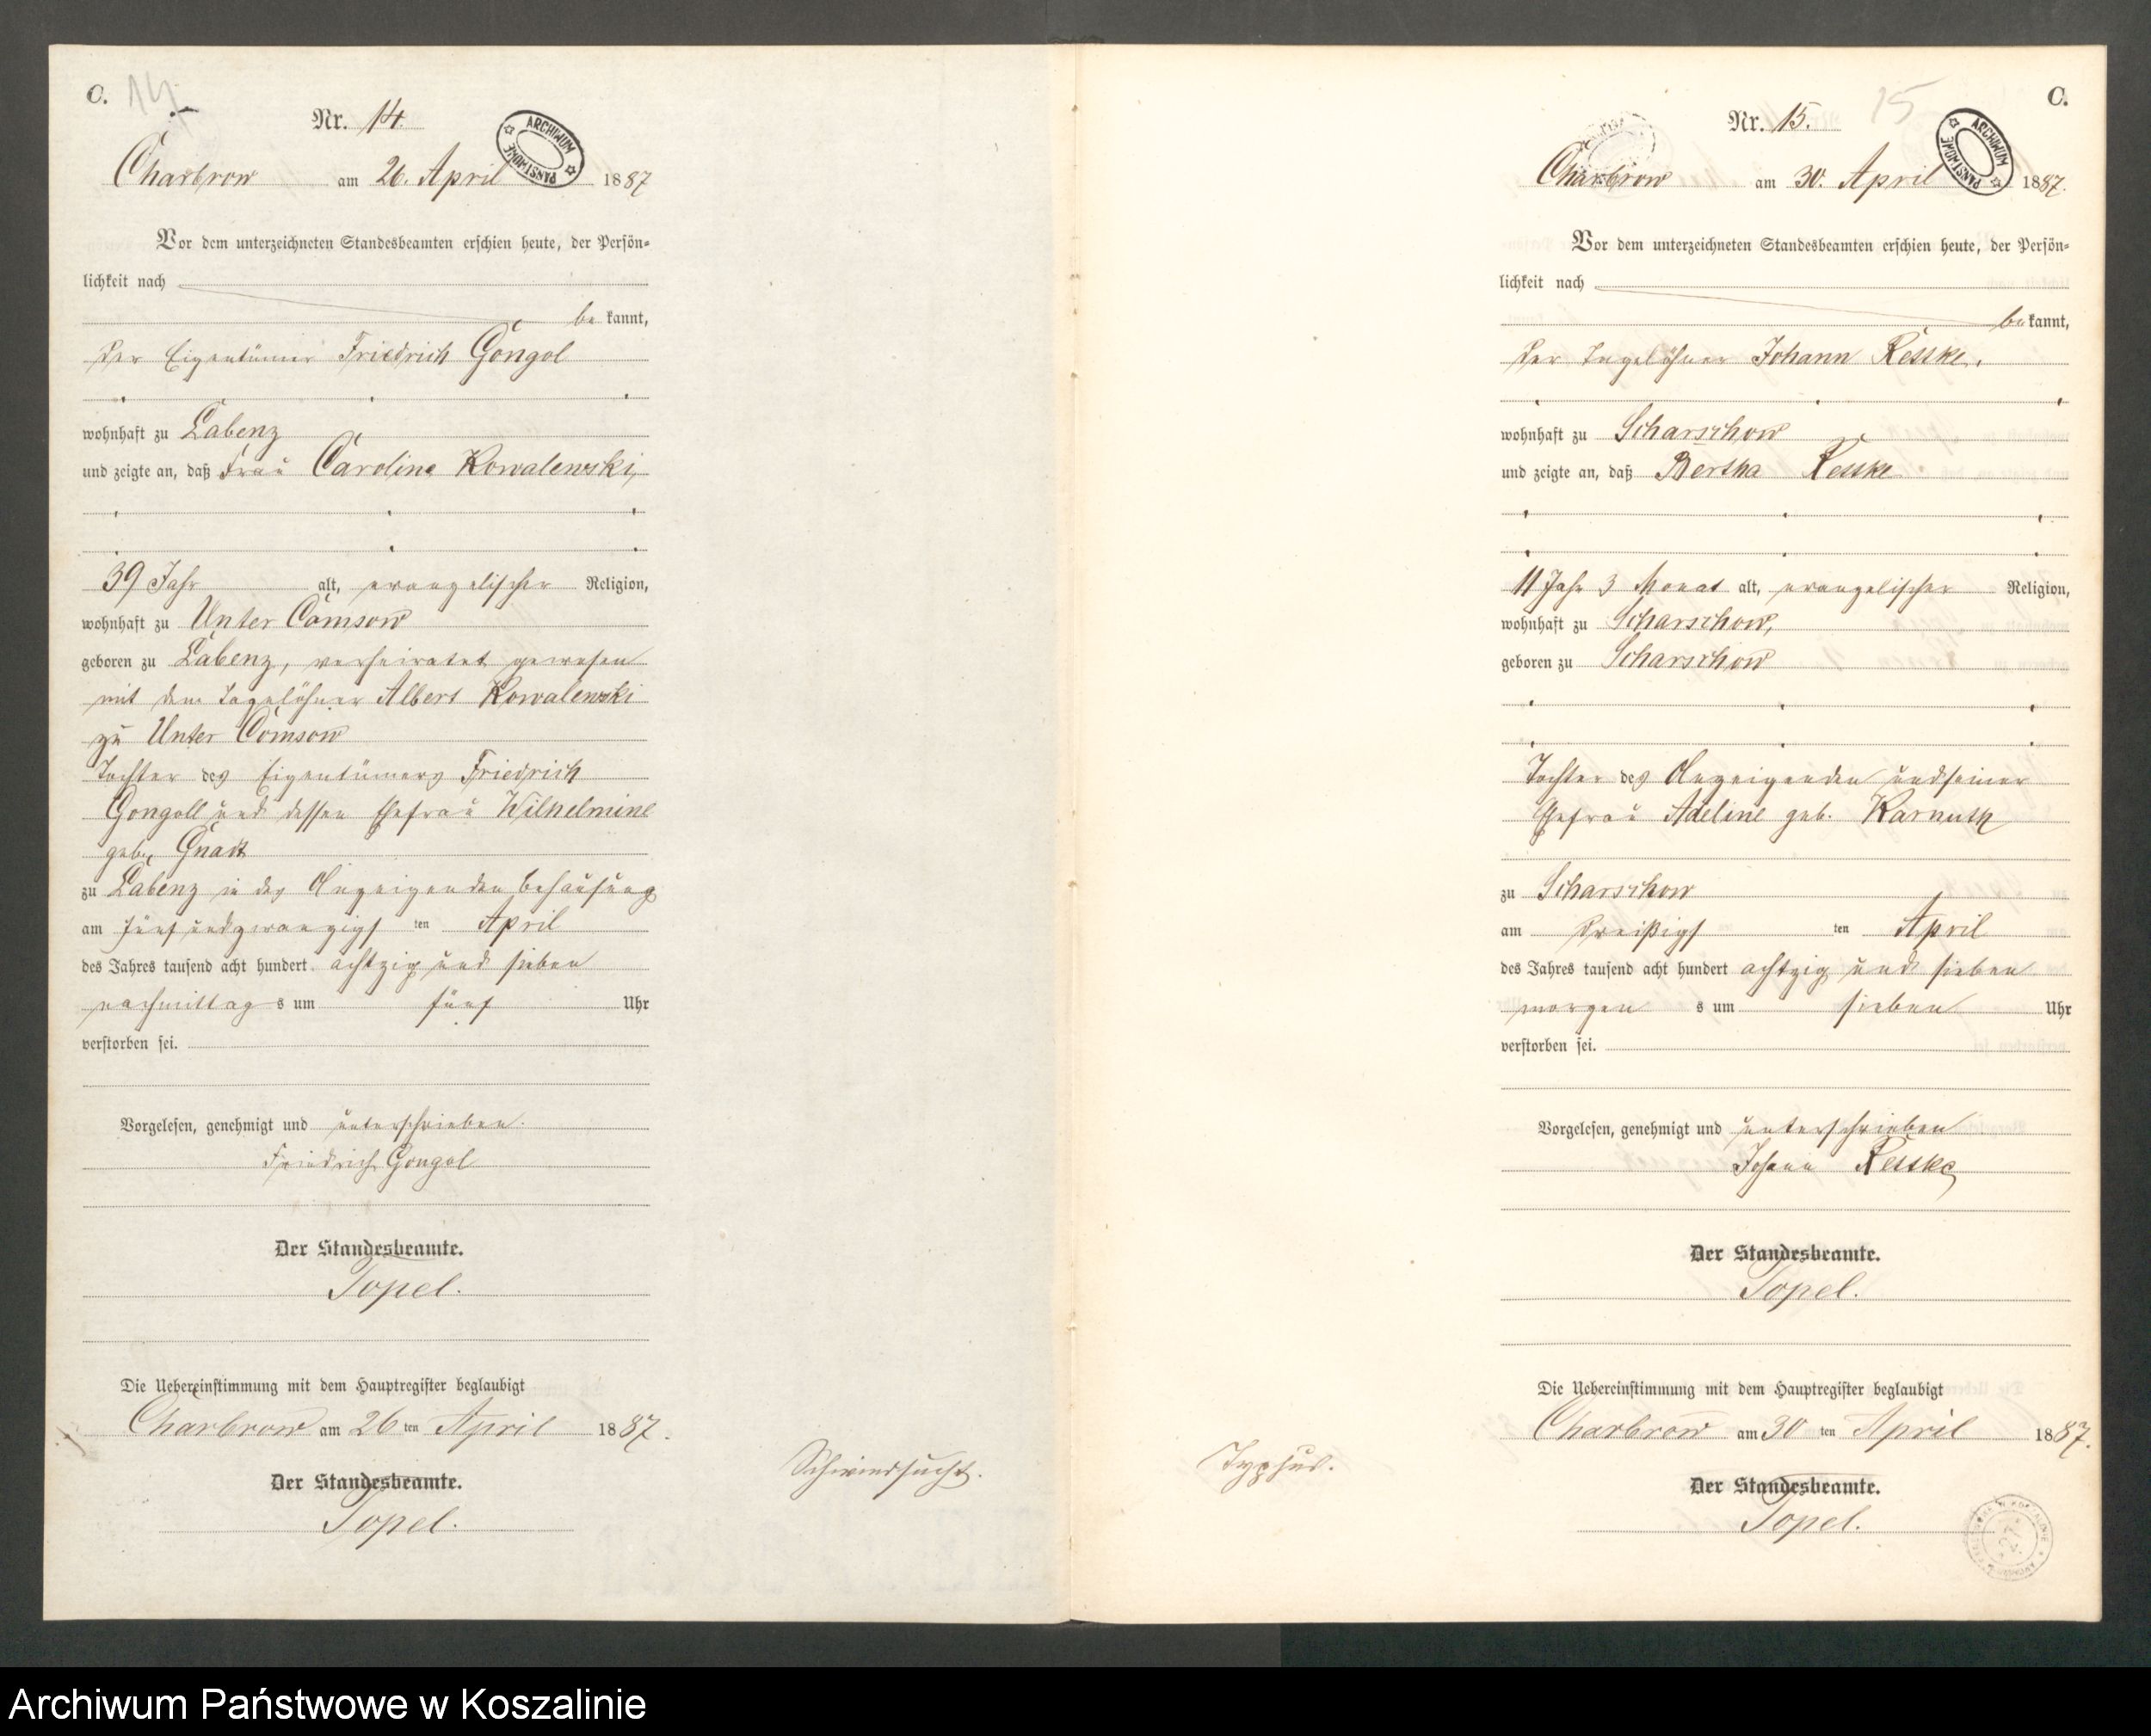 C. 14.
Nr. 14.
ARCHIWUM PAŃSTWOWE
Charbrow am 26. April 1887
Vor dem unterzeichneten Standesbeamten erschien heute, der Persön-
lichkeit nach
be kannt,
der Eigentümer Friedrich Gongol
wohnhaft zu Labenz
und zeigte an, daß Frau Caroline Kowalewski,
39 Jahr alt, evangelischer Religion,
wohnhaft zu Unter Comsow
geboren zu Labenz, verheiratet gewesen
mit dem Tagelöhner Albert Kowalewski
zu Unter Comsow
Tochter des Eigentümers Friedrich
Gongoll und dessen Ehefrau Wilhelmine
geb.
zu Labenz in des Anzeigenden Behausung
am fünf und zwanzigs ten April
des Jahres tausend acht hundert achtzig und sieben
nachmittag s um fünf Uhr
verstorben sei.
Vorgelesen, genehmigt und unterschrieben.
Friedrich Gongol
Der Standesbeamte.
Topel.
Die Uebereinstimmung mit dem Hauptregister beglaubigt
Charbrow am 26 ten April 1887.
Der Standesbeamte.
Topel.
Schwindsucht.
15 C.
Nr. 15.
ARCHIWUM PAŃSTWOWE
Charbrow am 30. April 1887.
Vor dem unterzeichneten Standesbeamten erschien heute, der Persön-
lichkeit nach
be kannt,
der Tagelöhner Johann Resske,
wohnhaft zu Scharschow
und zeigte an, daß Bertha Resske
11 Jahr 3 Monat alt, evangelischer Religion,
wohnhaft zu Scharschow,
geboren zu Scharschow
Tochter des Anzeigenden und seiner
Ehefrau Adeline geb. Karnuth
zu Scharschow
am dreißigs ten April
des Jahres tausend acht hundert achtzig und sieben
morgen s um sieben Uhr
verstorben sei.
Vorgelesen, genehmigt und unterschrieben
Johann Resske
Der Standesbeamte.
Topel.
Die Uebereinstimmung mit dem Hauptregister beglaubigt
Charbrow am 30 ten April 1887.
Der Standesbeamte.
Topel.
Typhus.
Archiwum Państwowe w Koszalinie